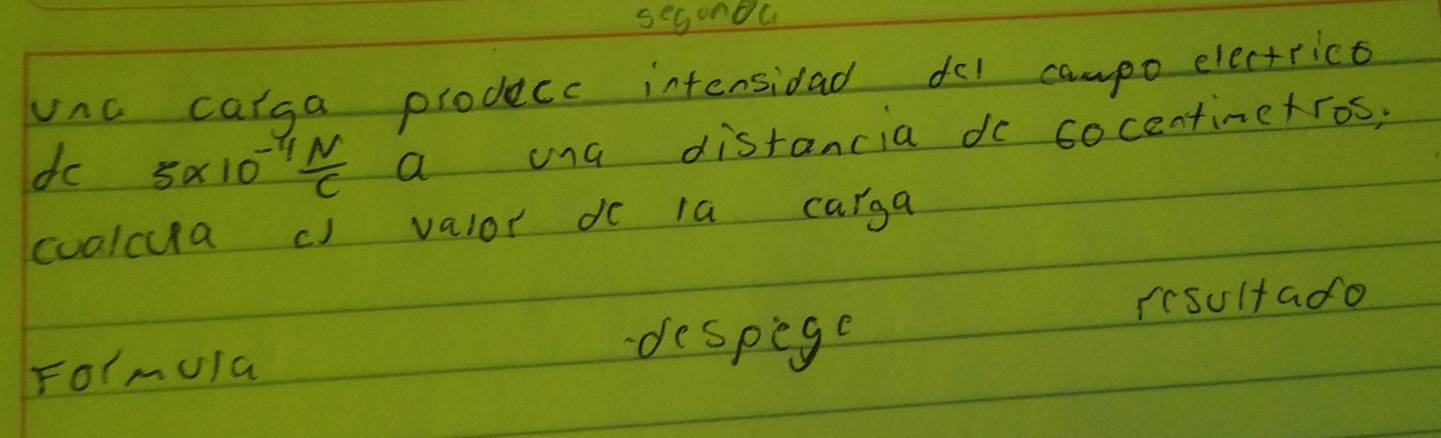 segunda
una carga prodece intensidad del campo electrico
de 5x10⁻⁴ N/C a una distancia de 60centimetros,
cualcula el valor de la carga
resultado
Formula despege